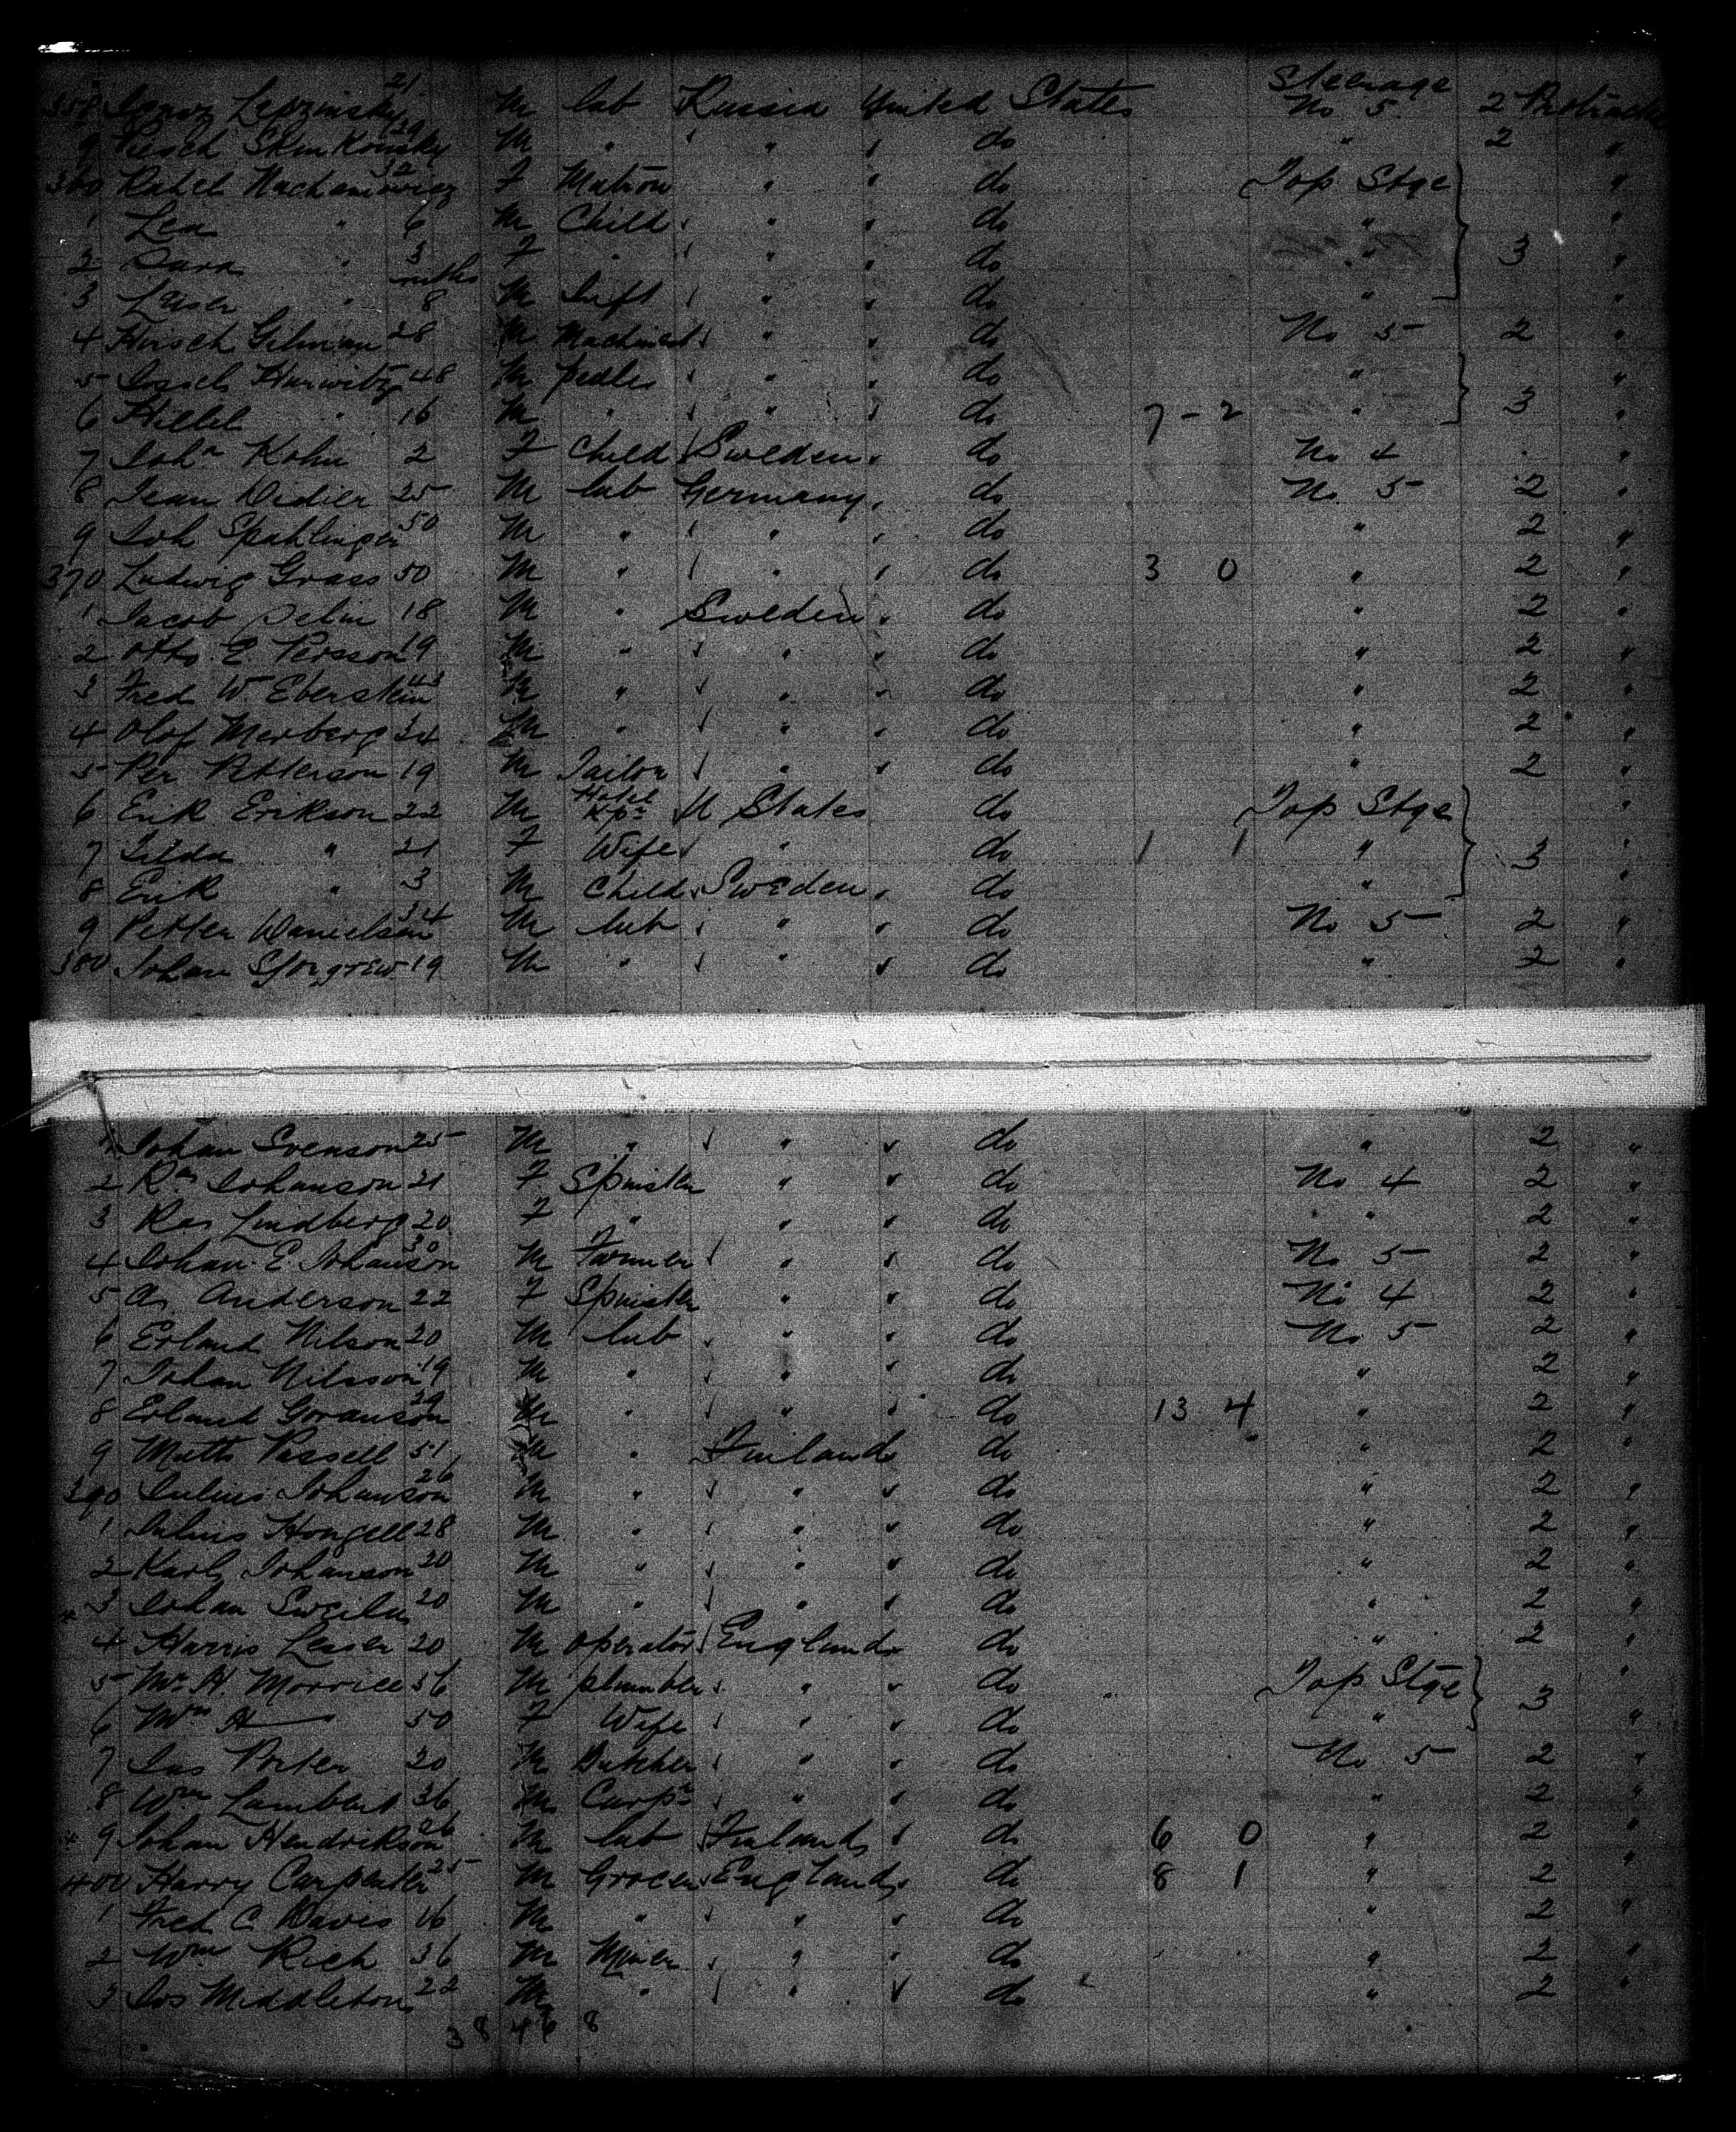 Steerage
358 Leszinsky 21 M lab Russia United States No 5 2 Protracted
9 29 M " " " do " 2 "
360 Rahel 32 F Matron " " do Top Stge "
1 Lea " 6 M Child " " do " "
2 Sara " 3 F " " " do " 3 "
mths
3 Leiser " 8 M Inft " " do " "
4 Hirsch Gilman 28 M Machinist " " do No 5 2 "
5 Hurwitz 48 M pedler " " do " "
6 Hillel " 16 M " " " do 7 - 2 " 3 "
7 Joha Kohn 2 F Child Sweden " do No 4 "
8 Jean Didier 25 M lab Germany " do No 5 2 "
9 Joh Spahlinger 50 M " " " do " 2 "
370 Ludwig Grass 50 M " " " do 3 0 " 2 "
1 Jacob Selin 18 M " Sweden " do " 2 "
2 Otto E. Persson 19 M " " " do " 2 "
3 Fred W Eberstein 43 M " " " do " 2 "
4 Olof Merberg 34 M " " " do " 2 "
5 Per Petterson 19 M Tailor " " do " 2 "
6 Erik Erikson 22 M Hotel Kpr U States do Top Stge "
7 Tilda " 21 F Wife " do 1 1 " 3 "
8 Erik " 3 M Child Sweden " do " "
9 Petter Danielson 34 M lab " " do No 5 2 "
380 Johan 19 M " " " do " 2 "
1 Johan Svenson 25 M " " " do " 2 "
2 Johanson 21 F Spinster " " do No 4 2 "
3 Lindberg 20 F " " " do " " 2 "
4 Johan E. Johanson 30 M Farmer " " do No 5 2 "
5 Anderson 22 F Spinster " " do No 4 2 "
6 Erland Nilson 20 M lab " " do No 5 2 "
7 Johan Nilsson 19 M " " " do " 2 "
8 Erland Goranson 29 M " " " do 13 4 " 2 "
9 Matts 51 M " Finland do " 2 "
390 Julius Johanson 26 M " " " do " 2 "
1 Julius Hongell 28 M " " " do " 2 "
2 Karl Johanson 20 M " " " do " 2 "
3 Johan 20 M " " " do " 2 "
4 Harris Leiser 20 M operator England do " 2 "
5 Mr H. Morrice 56 M plumber " " do Top Stge "
6 Mrs H 50 F Wife " " do " 3 "
7 Jas Porter 20 M Butcher " " do No 5 2 "
8 Wm Lambert 36 M Carpr " " do " 2 "
9 Johan Hendrikson 26 M lab Finland " do 6 0 " 2 "
400 Harry Carpenter 25 M Grocer England do 8 1 " 2 "
1 Fred C. Davis 16 M " " " do " 2 "
2 Wm Rich 36 M Miner " " do " 2 "
3 Jos Middleton 22 M " " " do " 2 "
38 46 8